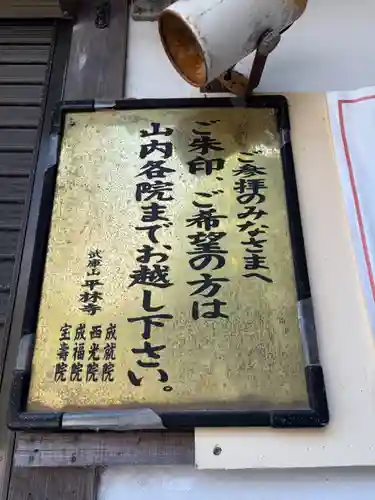 ご参拝のみなさまへ
ご朱印、ご希望の方は
山内各院まで、お越し下さい。
武郷山 平林寺
成就院
西光院
成福院
宝壽院